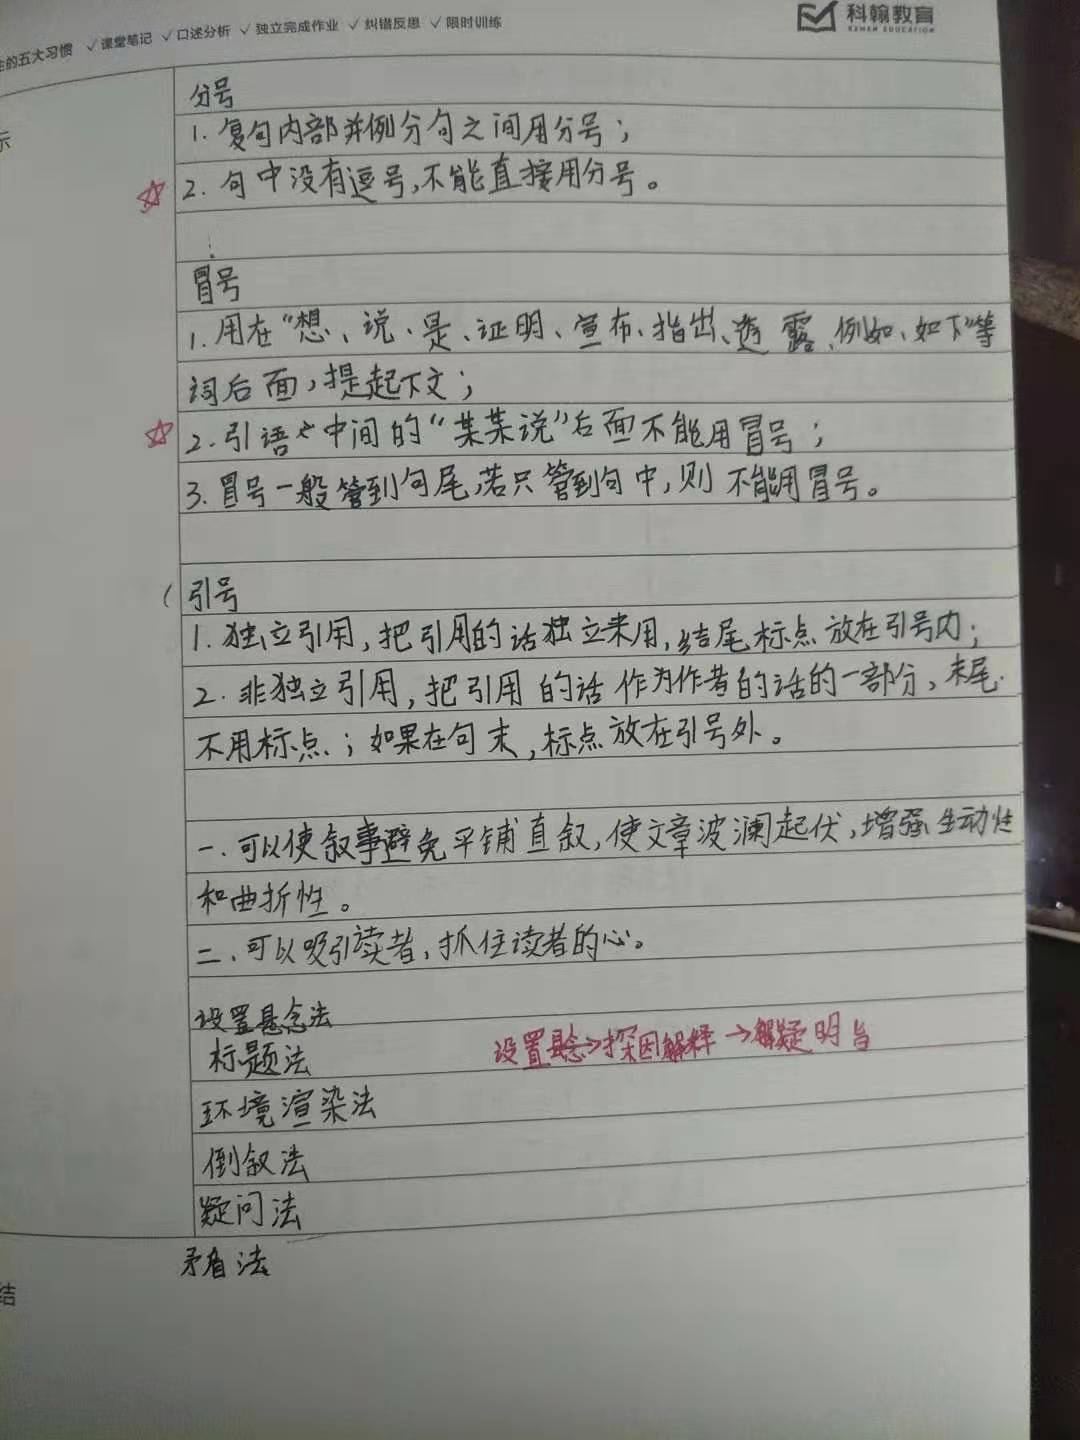 生的五大习惯 ✓课堂笔记 ✓口述分析 ✓独立完成作业 ✓纠错反思 ✓限时训练
科翰教育
KEHAN EDUCATION
示
分号
1. 复句内部并例分句之间用分号；
☆ 2. 句中没有逗号,不能直接用分号。
冒号
1.用在“想、说、是、证明、宣布、指出、透露、例如、如下”等
词后面，提起下文；
☆ 2.引语中间的“某某说”后面不能用冒号；
3.冒号一般管到句尾,若只管到句中,则不能用冒号。
引号
1.独立引用,把引用的话独立来用,结尾标点放在引号内；
2.非独立引用,把引用的话作为作者的话的一部分,末尾
不用标点；如果在句末,标点放在引号外。
一.可以使叙事避免平铺直叙,使文章波澜起伏,增强生动性
和曲折性。
二.可以吸引读者,抓住读者的心。
设置悬念法
标题法 设置悬念→探因解释→解疑明旨
环境渲染法
倒叙法
疑问法
矛盾法
结